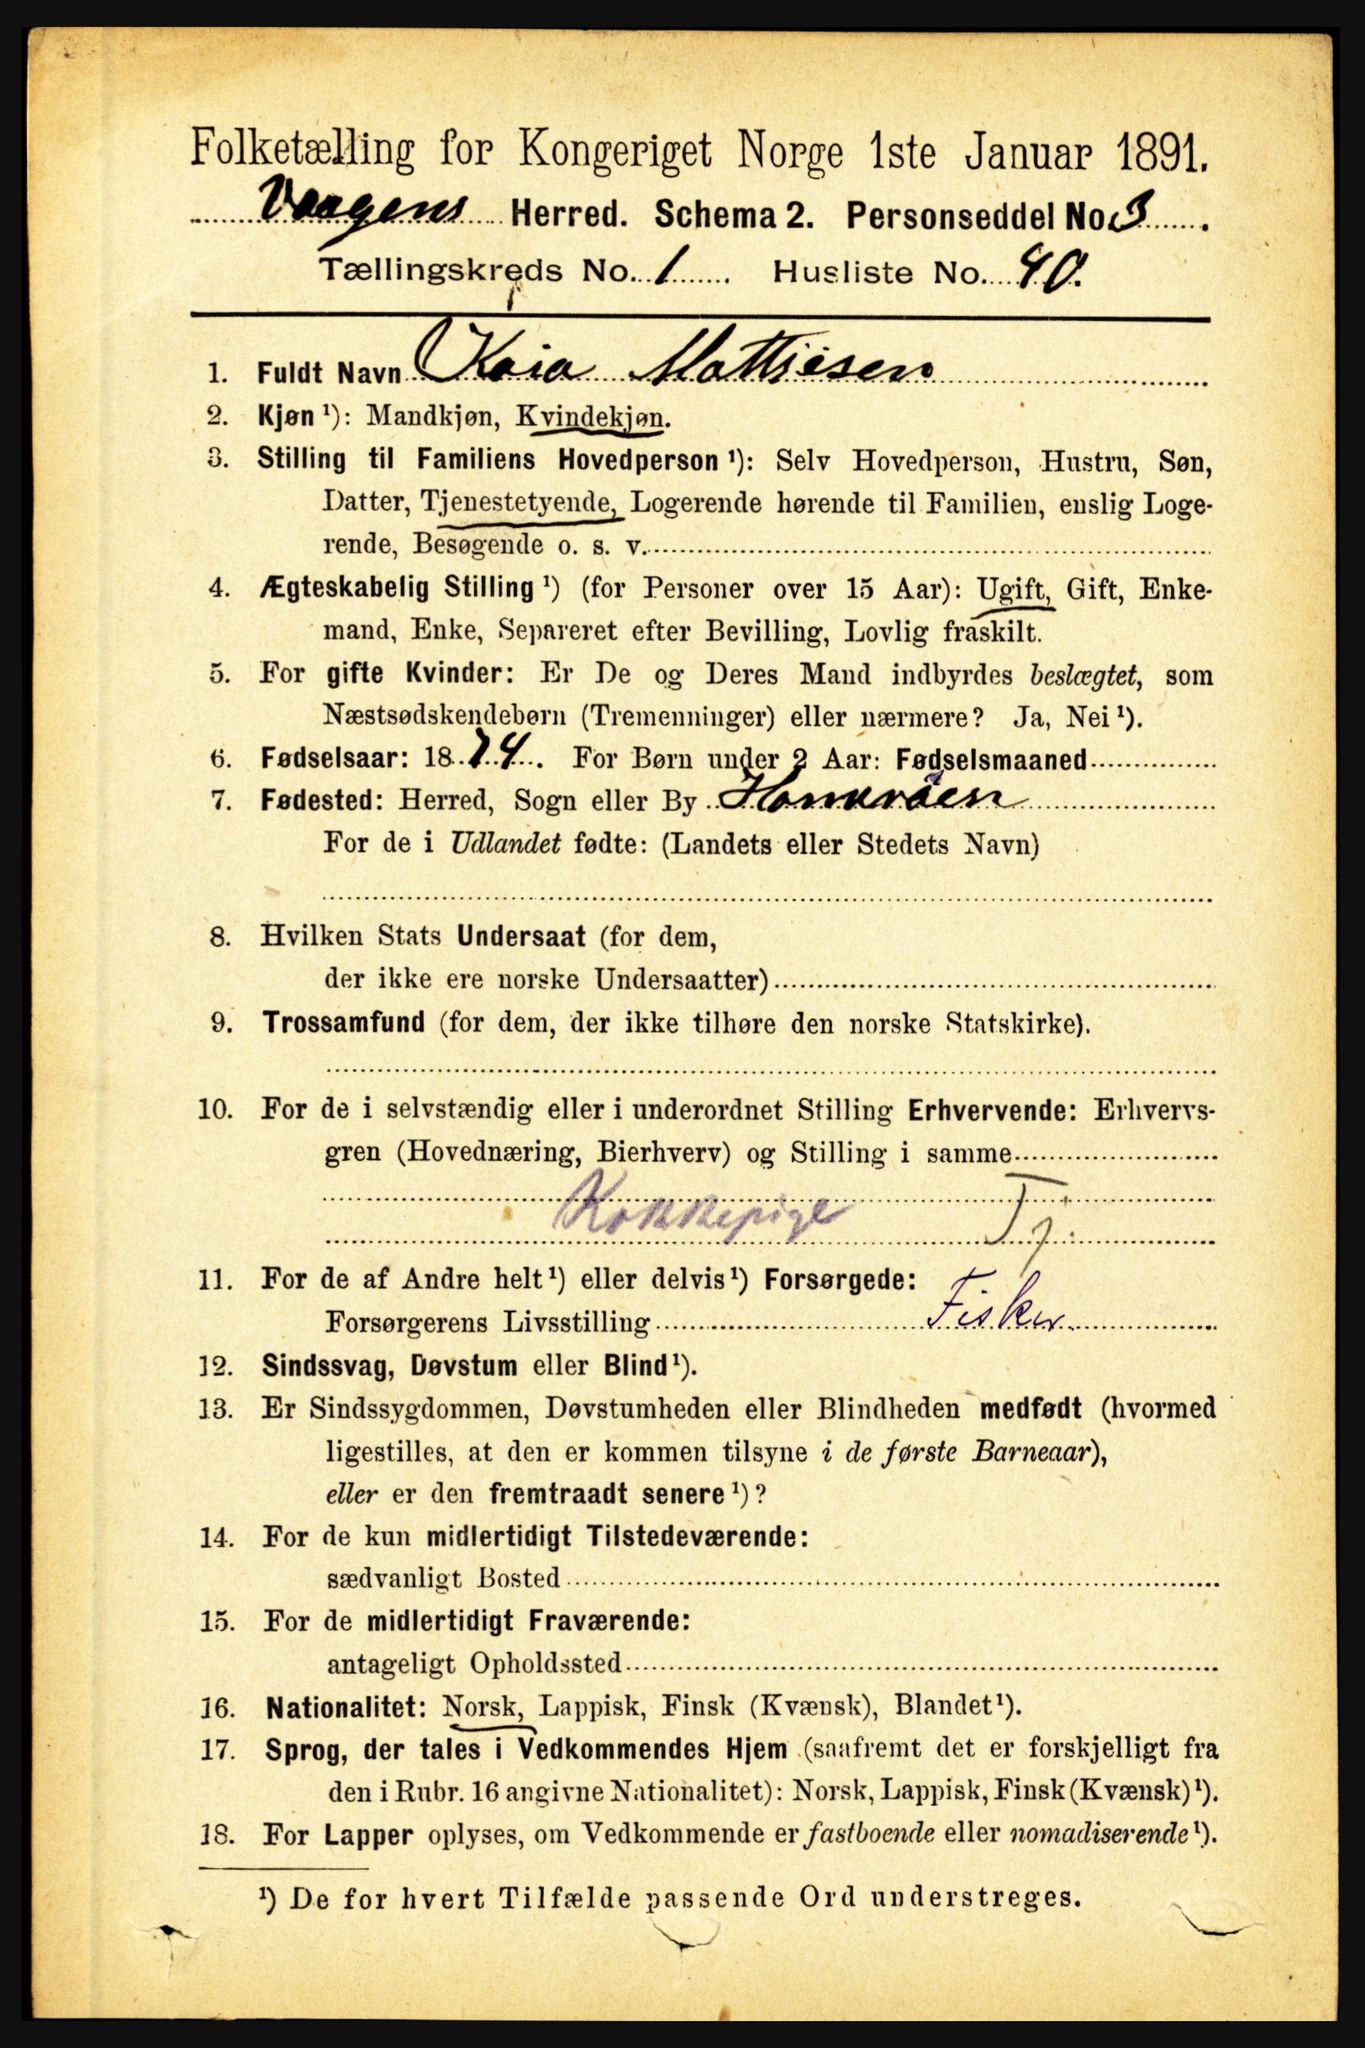 Folketælling for Kongeriget Norge 1ste Januar 1891.
Vaagens Herred. Schema 2. Personseddel No. 3.
Tællingskreds No. 1. Husliste No. 40.
1. Fuldt Navn Kaia Mattiesen
2. Kjøn ¹): Mandkjøn, Kvindekjøn.
3. Stilling til Familiens Hovedperson ¹): Selv Hovedperson, Hustru, Søn,
Datter, Tjenestetyende, Logerende hørende til Familien, enslig Loge-
rende, Besøgende o. s. v.
4. Ægteskabelig Stilling ¹) (for Personer over 15 Aar): Ugift, Gift, Enke-
mand, Enke, Separeret efter Bevilling, Lovlig fraskilt.
5. For gifte Kvinder: Er De og Deres Mand indbyrdes beslægtet, som
Næstsødskendebørn (Tremenninger) eller nærmere? Ja, Nei ¹).
6. Fødselsaar: 1874. For Børn under 2 Aar: Fødselsmaaned
7. Fødested: Herred, Sogn eller By Hammrøen
For de i Udlandet fødte: (Landets eller Stedets Navn)
8. Hvilken Stats Undersaat (for dem,
der ikke ere norske Undersaatter)
9. Trossamfund (for dem, der ikke tilhøre den norske Statskirke).
10. For de i selvstændig eller i underordnet Stilling Erhvervende: Erhvervs-
gren (Hovednæring, Bierhverv) og Stilling i samme
Kokkepige Tj.
11. For de af Andre helt ¹) eller delvis ¹) Forsørgede:
Forsørgerens Livsstilling Fisker
12. Sindssvag, Døvstum eller Blind ¹).
13. Er Sindssygdommen, Døvstumheden eller Blindheden medfødt (hvormed
ligestilles, at den er kommen tilsyne i de første Barneaar),
eller er den fremtraadt senere ¹)?
14. For de kun midlertidigt Tilstedeværende:
sædvanligt Bosted
15. For de midlertidigt Fraværende:
antageligt Opholdssted
16. Nationalitet: Norsk, Lappisk, Finsk (Kvænsk), Blandet ¹).
17. Sprog, der tales i Vedkommendes Hjem (saafremt det er forskjelligt fra
den i Rubr. 16 angivne Nationalitet): Norsk, Lappisk, Finsk (Kvænsk) ¹).
18. For Lapper oplyses, om Vedkommende er fastboende eller nomadiserende ¹).
¹) De for hvert Tilfælde passende Ord understreges.